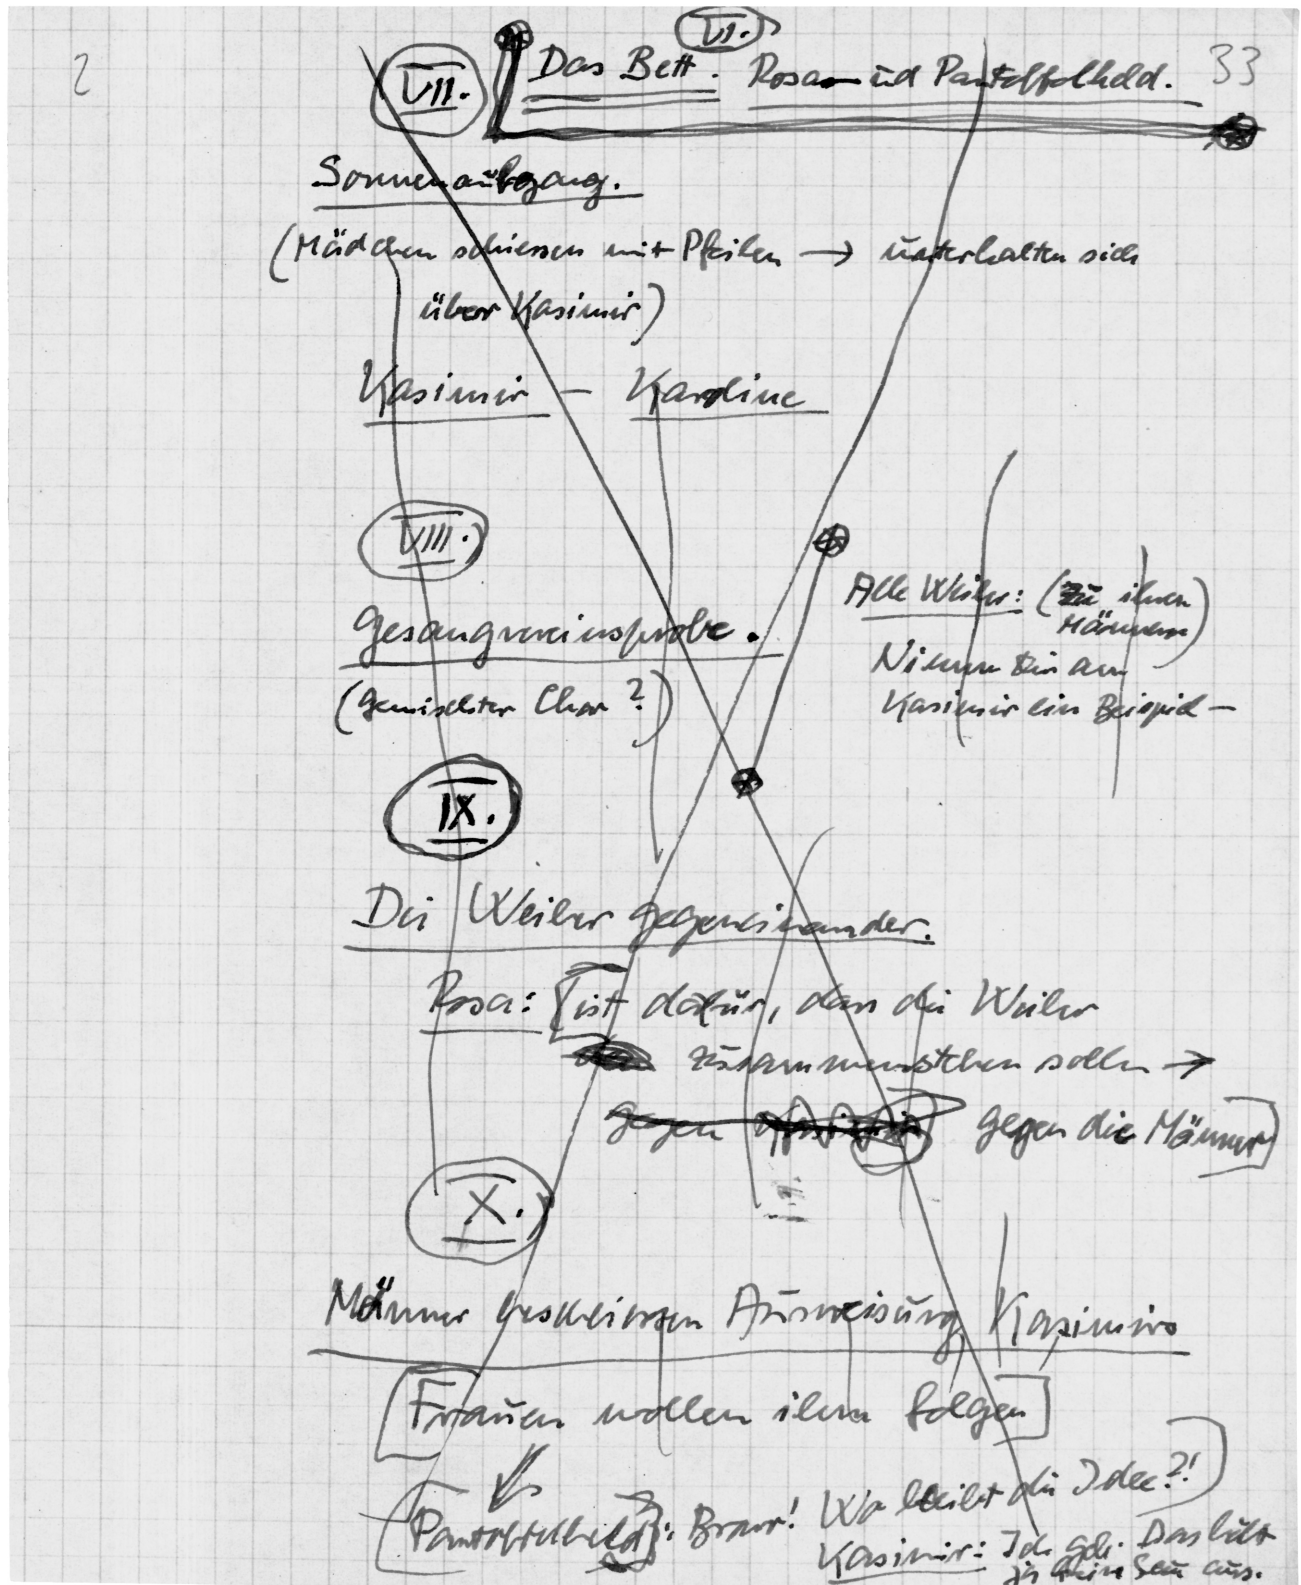 2
33
VI.
VII. Das Bett. Rosa und Pantoffelheld.
Sonnenaufgang.
(Mädchen schiessen mit Pfeilen → unterhalten sich
über Kasimir)
Kasimir – Karoline
VIII.
Gesangvereinsprobe.
(Gemischter Chor?)
Alle Weiber: (zu ihren
Männern)
Nimm Dir am
Kasimir ein Beispiel –
IX.
Die Weiber gegeneinander.
Rosa: [ist dafür, dass die Weiber
zusammenstehen sollen →
gegen gegen die Männer]
X.
Männer beschliessen Ausweisung Kasimirs
[Frauen wollen ihm folgen]
(Pantoffelheld): Bravo! Wo bleibt die Idee?!)
Kasimir: Ich geh. Das hält
ja kein Sau aus.